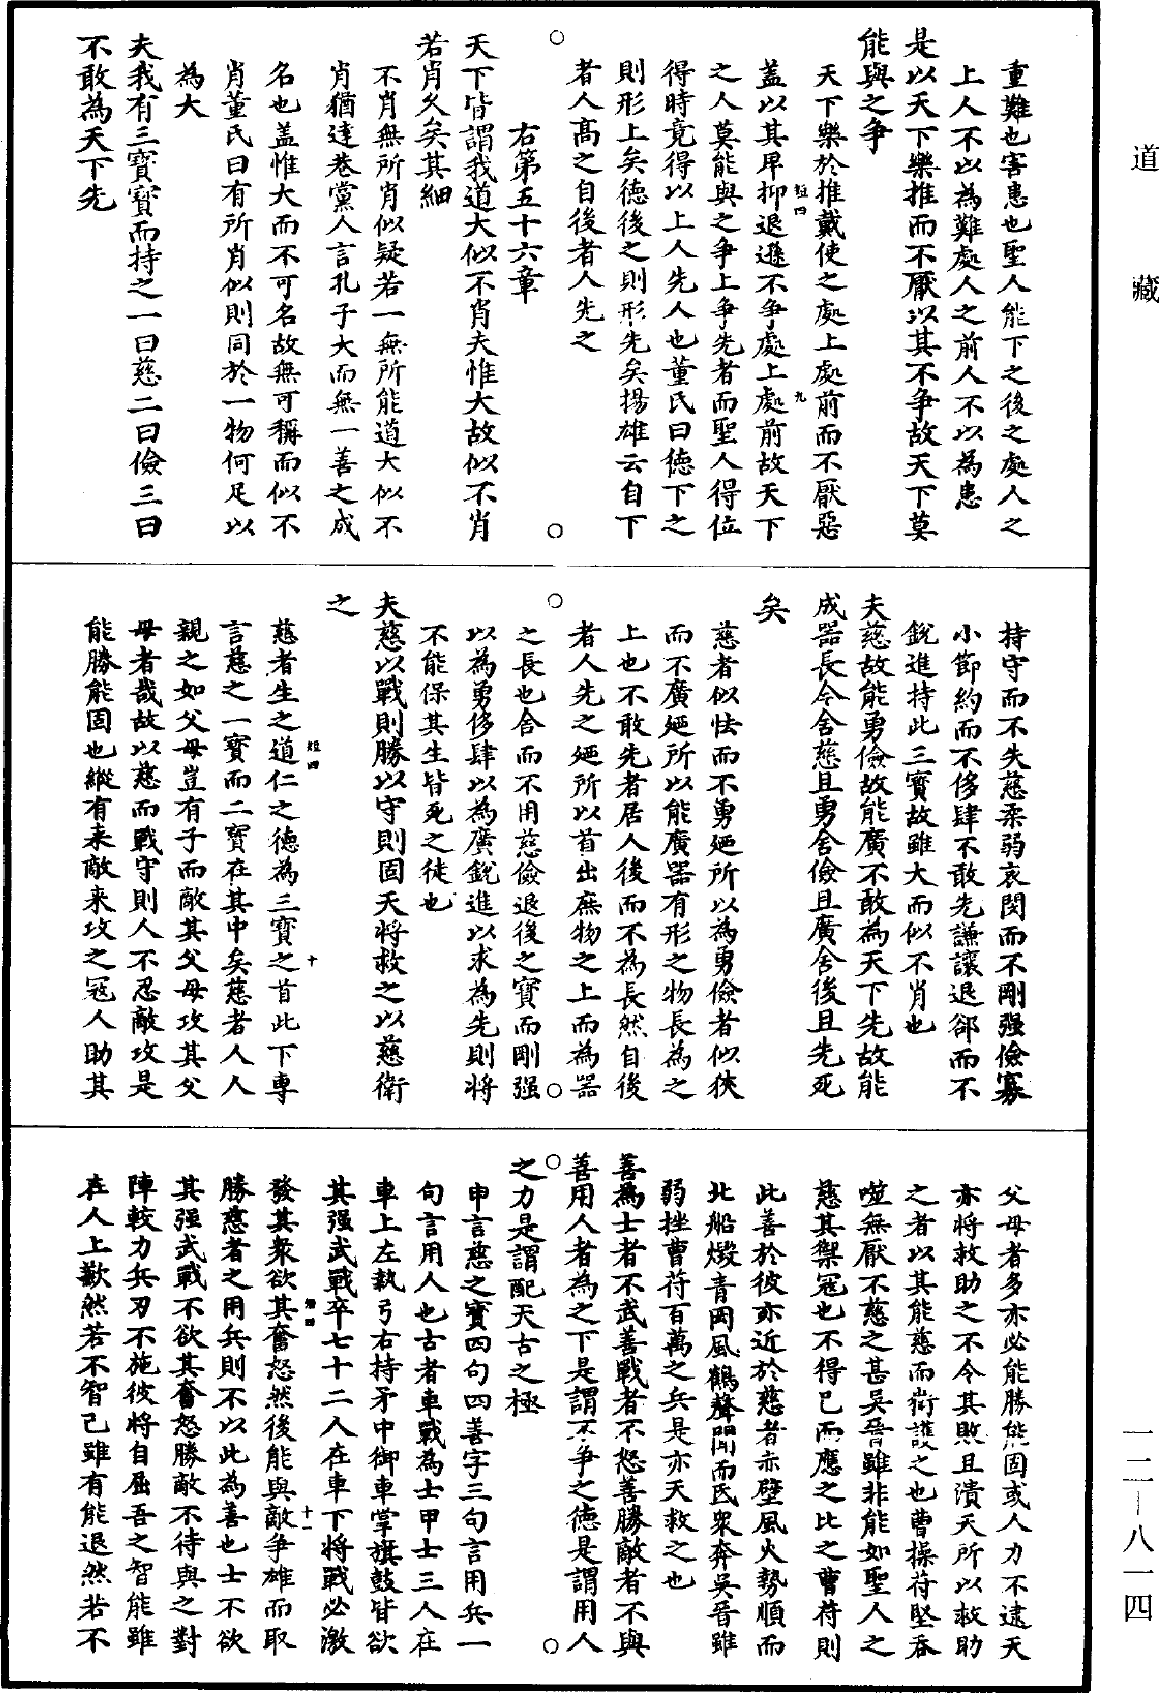 道藏
重難也害患也聖人能下之後之處人之
上人不以為難處人之前人不以為患
是以天下樂推而不厭以其不爭故天下莫
能與之爭
天下樂於推戴使之處上處前而不厭惡
蓋以其卑抑退遜不爭處上處前故天下
之人莫能與之爭上爭先者而聖人得位
得時竟得以上人先人也董氏曰德下之
則形上矣德後之則形先矣揚雄云自下
者人高之自後者人先之
右第五十六章
天下皆謂我道大似不肖夫惟大故似不肖
若肖久矣其細
不肖無所肖似疑若一無所能道大似不
肖猶達巷黨人言孔子大而無一善之成
名也蓋惟大而不可名故無可稱而似不
肖董氏曰有所肖似則同於一物何足以
為大
夫我有三寶寶而持之一曰慈二曰儉三曰
不敢為天下先
持守而不失慈柔弱哀閔而不剛强儉寡
小節約而不侈肆不敢先謙讓退郤而不
銳進持此三寶故雖大而似不肖也
夫慈故能勇儉故能廣不敢為天下先故能
成器長今舍慈且勇舍儉且廣舍後且先死
矣
慈者似怯而不勇廼所以為勇儉者似狹
而不廣廼所以能廣器有形之物長為之
上也不敢先者居人後而不為長然自後
者人先之廼所以首出庶物之上而為器
之長也舍而不用慈儉退後之寶而剛强
以為勇侈肆以為廣銳進以求為先則將
不能保其生皆死之徒也
夫慈以戰則勝以守則固天將救之以慈衛
之
慈者生之道仁之德為三寶之首此下專
言慈之一寶而二寶在其中矣慈者人人
親之如父母豈有子而敵其父母攻其父
母者哉故以慈而戰守則人不忍敵攻是
能勝能固也縱有来敵来攻之冦人助其
父母者多亦必能勝能固或人力不逮天
亦將救助之不令其敗且潰天所以救助
之者以其能慈而衛護之也曹操苻堅吞
噬無厭不慈之甚吳晉雖非能如聖人之
慈其禦冦也不得已而應之比之曹苻則
此善於彼亦近於慈者赤壁風火勢順而
北船燬青岡風鶴聲聞而氐衆奔吳晉雖
弱挫曹苻百萬之兵是亦天救之也
善為士者不武善戰者不怒善勝敵者不與
善用人者為之下是謂不爭之德是謂用人
之力是謂配天古之極
申言慈之寶四句四善字三句言用兵一
句言用人也古者車戰為士甲士三人在
車上左執弓右持矛中御車掌旗鼓皆欲
其强武戰卒七十二人在車下將戰必激
發其衆欲其奮怒然後能與敵爭雄而取
勝慈者之用兵則不以此為善也士不欲
其强武戰不欲其奮怒勝敵不待與之對
陣較力兵刃不施彼將自屈吾之智能雖
在人上歉然若不智己雖有能退然若不
一二—八一四